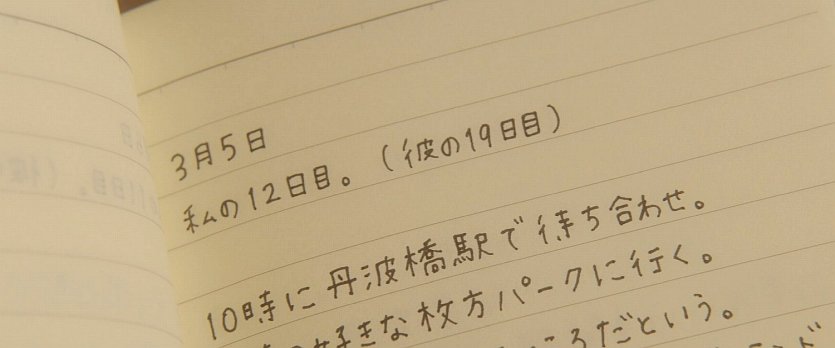 3月5日
私の12日目。(彼の19日目)
10時に丹波橋駅で待ち合わせ。
好きな枚方パークに行く。
ころだという。